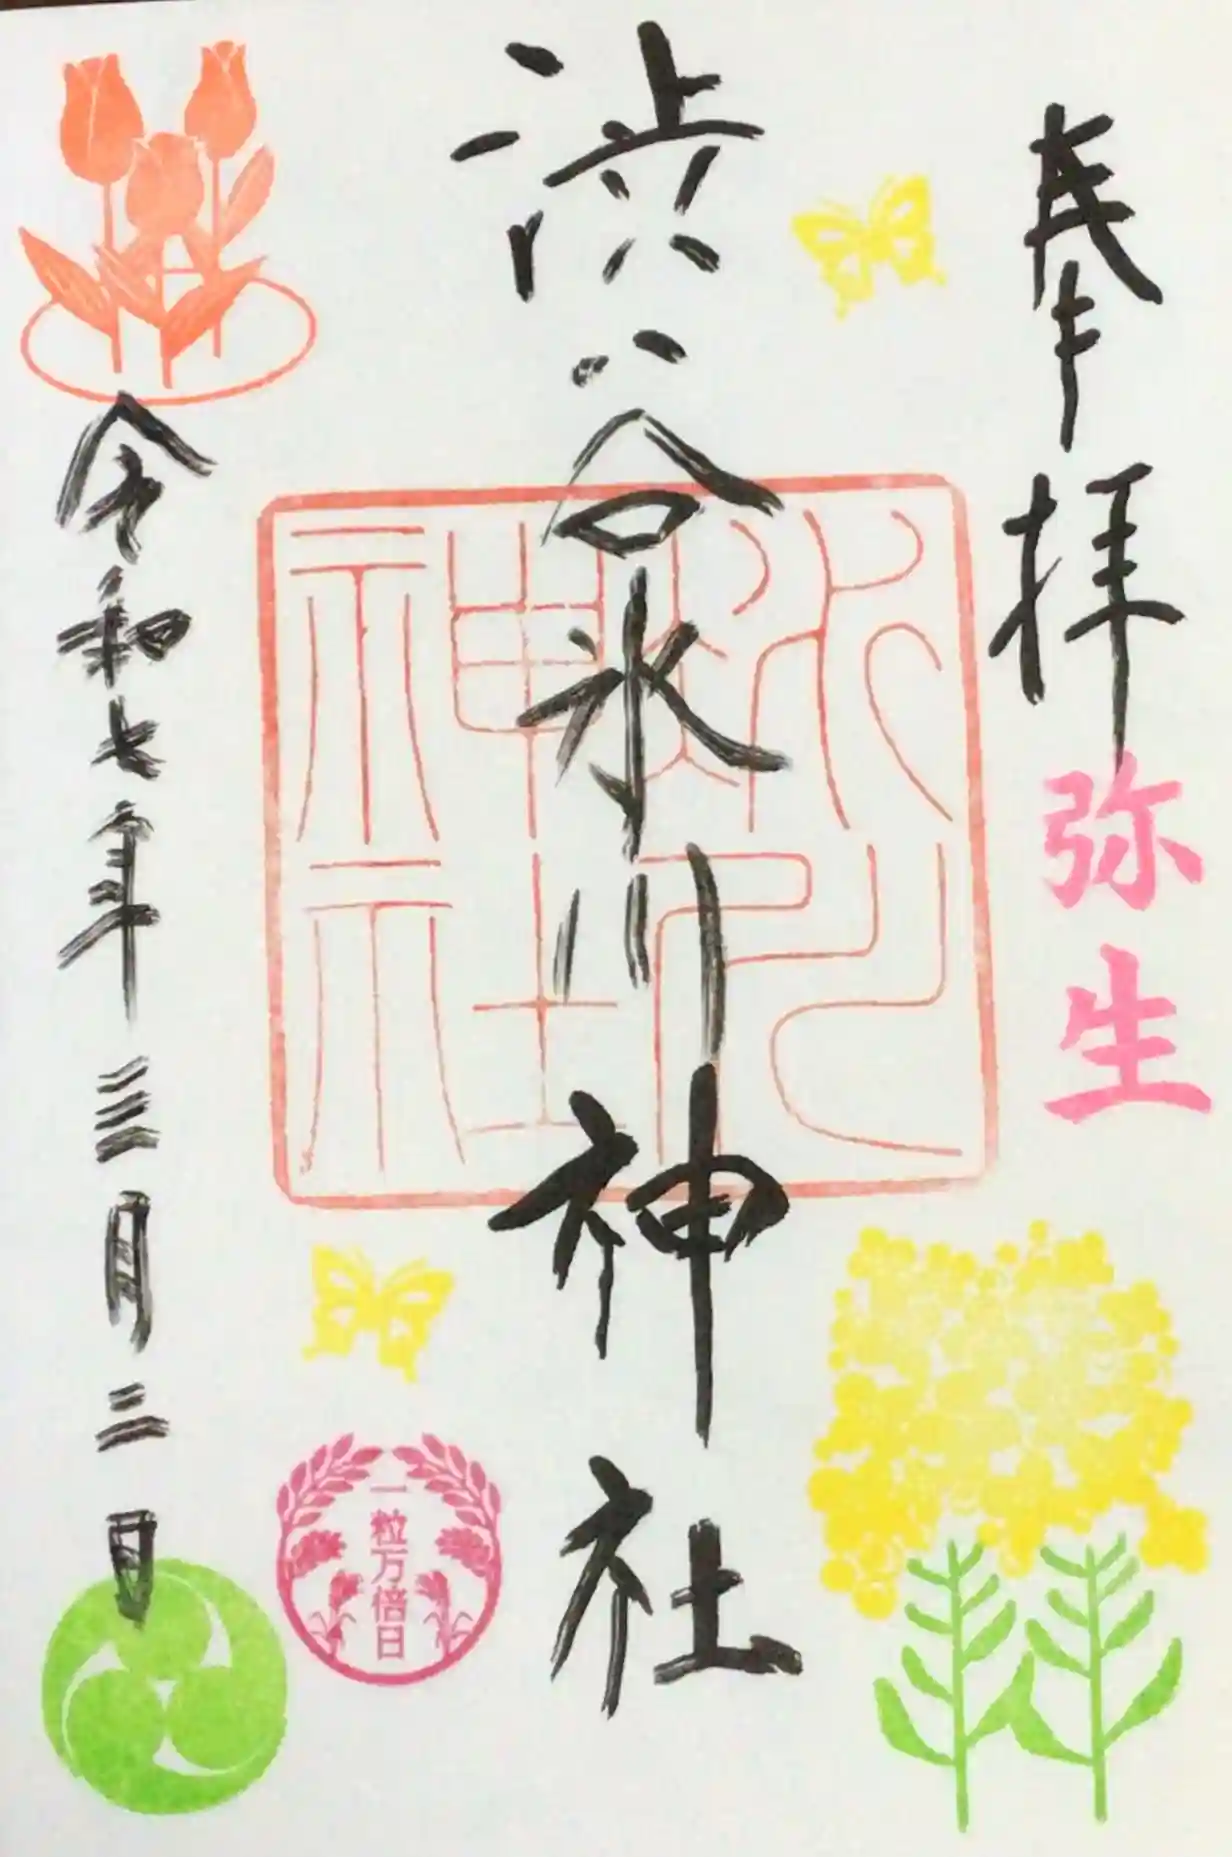 奉拝
弥生
渋谷氷川神社
渋谷
氷川
神社
令和七年三月二日
一粒万倍日